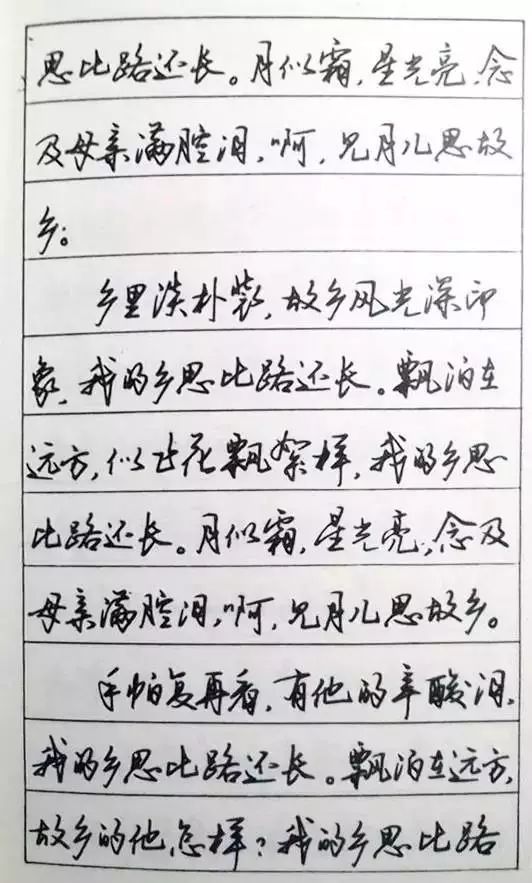 思比路还长。月似霜，星光亮，念
及母亲满腔泪，啊，见月儿思故
乡。
乡里淡朴装，故乡风光深印
象，我的乡思比路还长。飘泊在
远方，似花飘絮样，我的乡思
比路还长。月似霜，星光亮，念及
母亲满腔泪，啊，见月儿思故乡。
手帕复再看，有他的辛酸泪，
我的乡思比路还长。飘泊在远方，
故乡的他，怎样？我的乡思比路